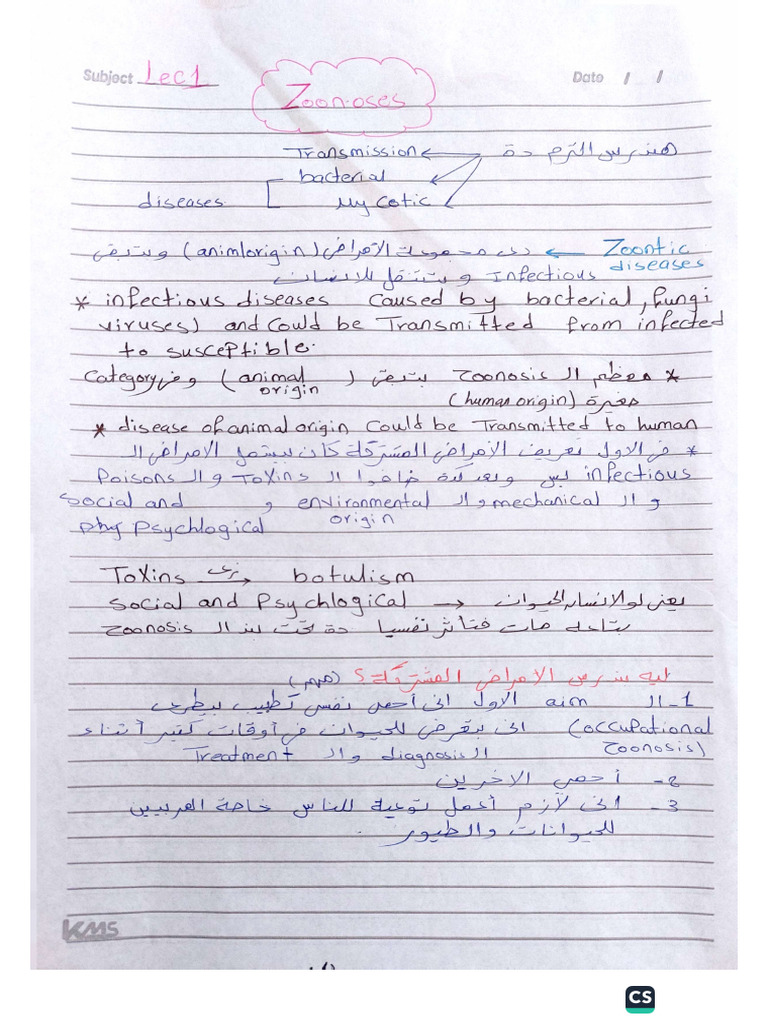 Subject Lec1
Date / /
Zoonoses
هندرس الترم دة Transmission
bacterial
diseases Mycotic
Zoontic diseases ← دى مجموعة الأمراض (animlorigin) وبتبقى
Infectious وبتتنقل للانسان
* infectious diseases caused by bacterial, fungi
viruses) and Could be Transmitted from infected
to susceptible.
* معظم الـ Zoonosis بتبقى (animal origin) وفى Category
صغيرة (human origin)
* disease of animal origin Could be Transmitted to human
* فى الاول تعريف الأمراض المشتركة كان بيشمل الامراض الـ
infectious بس وبعد كدة ضافوا الـ Toxins والـ Poisons
والـ mechanical والـ environmental origin و Social and
Psychlogical
Toxins زى → botulism
Social and Psychlogical → يعنى لو الانسان الحيوان
بتاعه مات فتأثر نفسيا دة تحت بند الـ Zoonosis
ليه بندرس الامراض المشتركة؟ (مهم)
1- الـ aim الاول انى أحمى نفسى كطبيب بيطرى
(occupational Zoonosis) انى بتعرض للحيوان فى أوقات كتير أثناء
الـ diagnosis والـ Treatment
2- أحمي الاخرين
3- انى لازم أعمل توعية للناس خاصة المربيين
للحيوانات والطيور.
KMS
CS